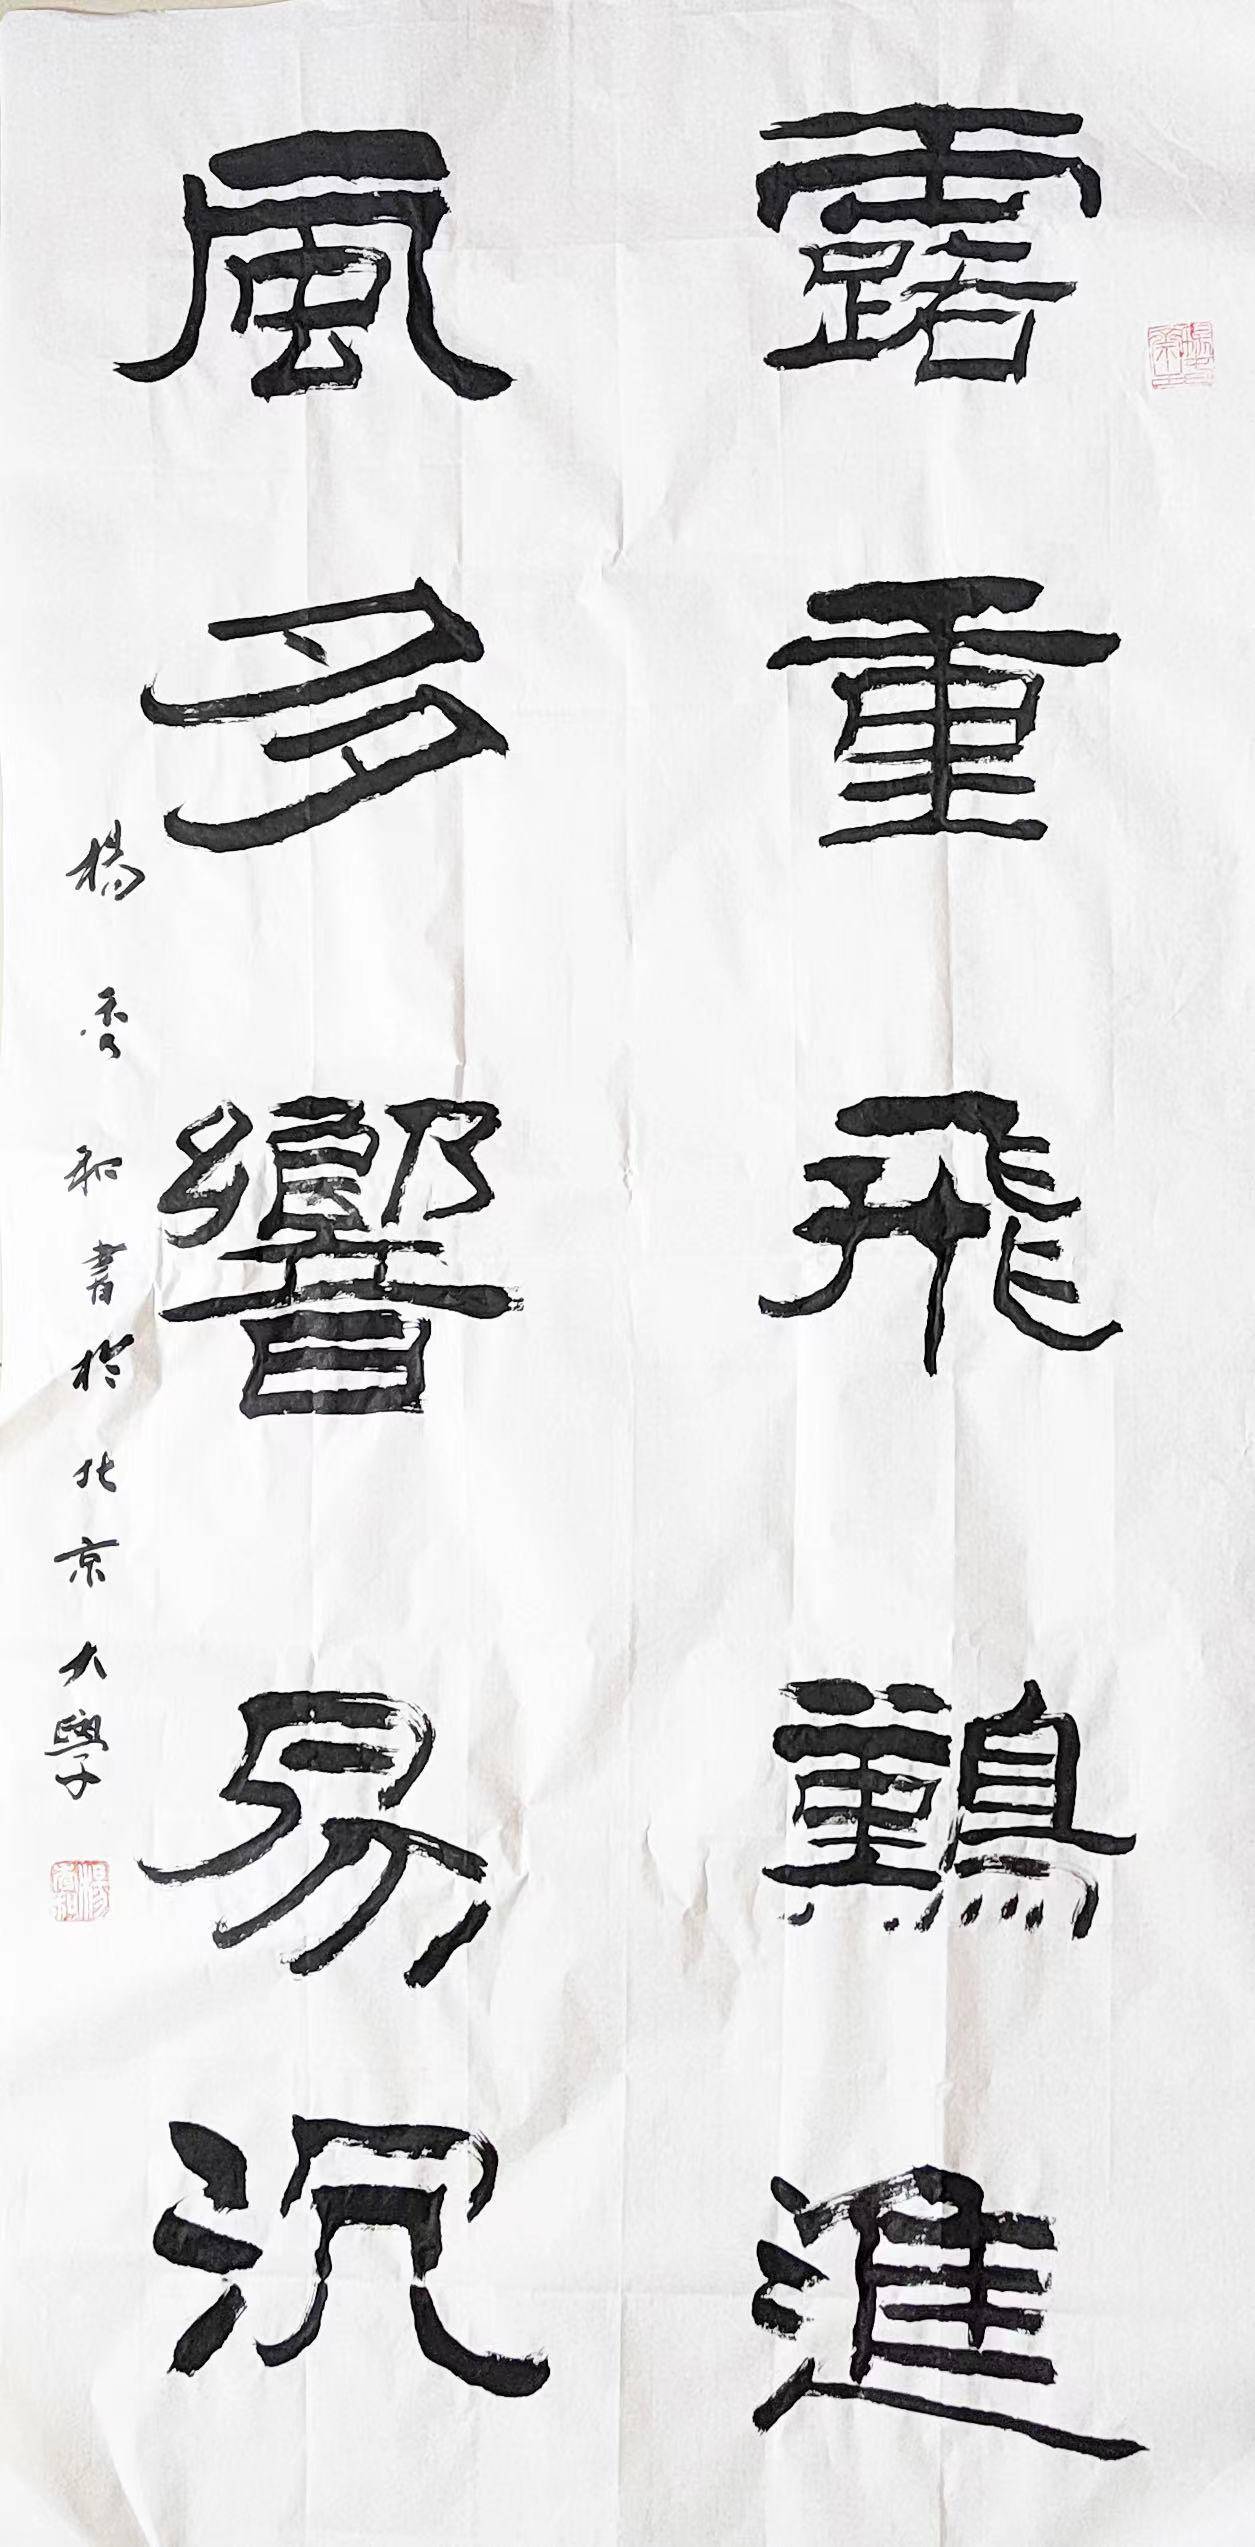 露重飛難進
風多響易沉
楊秀和書於北京大學